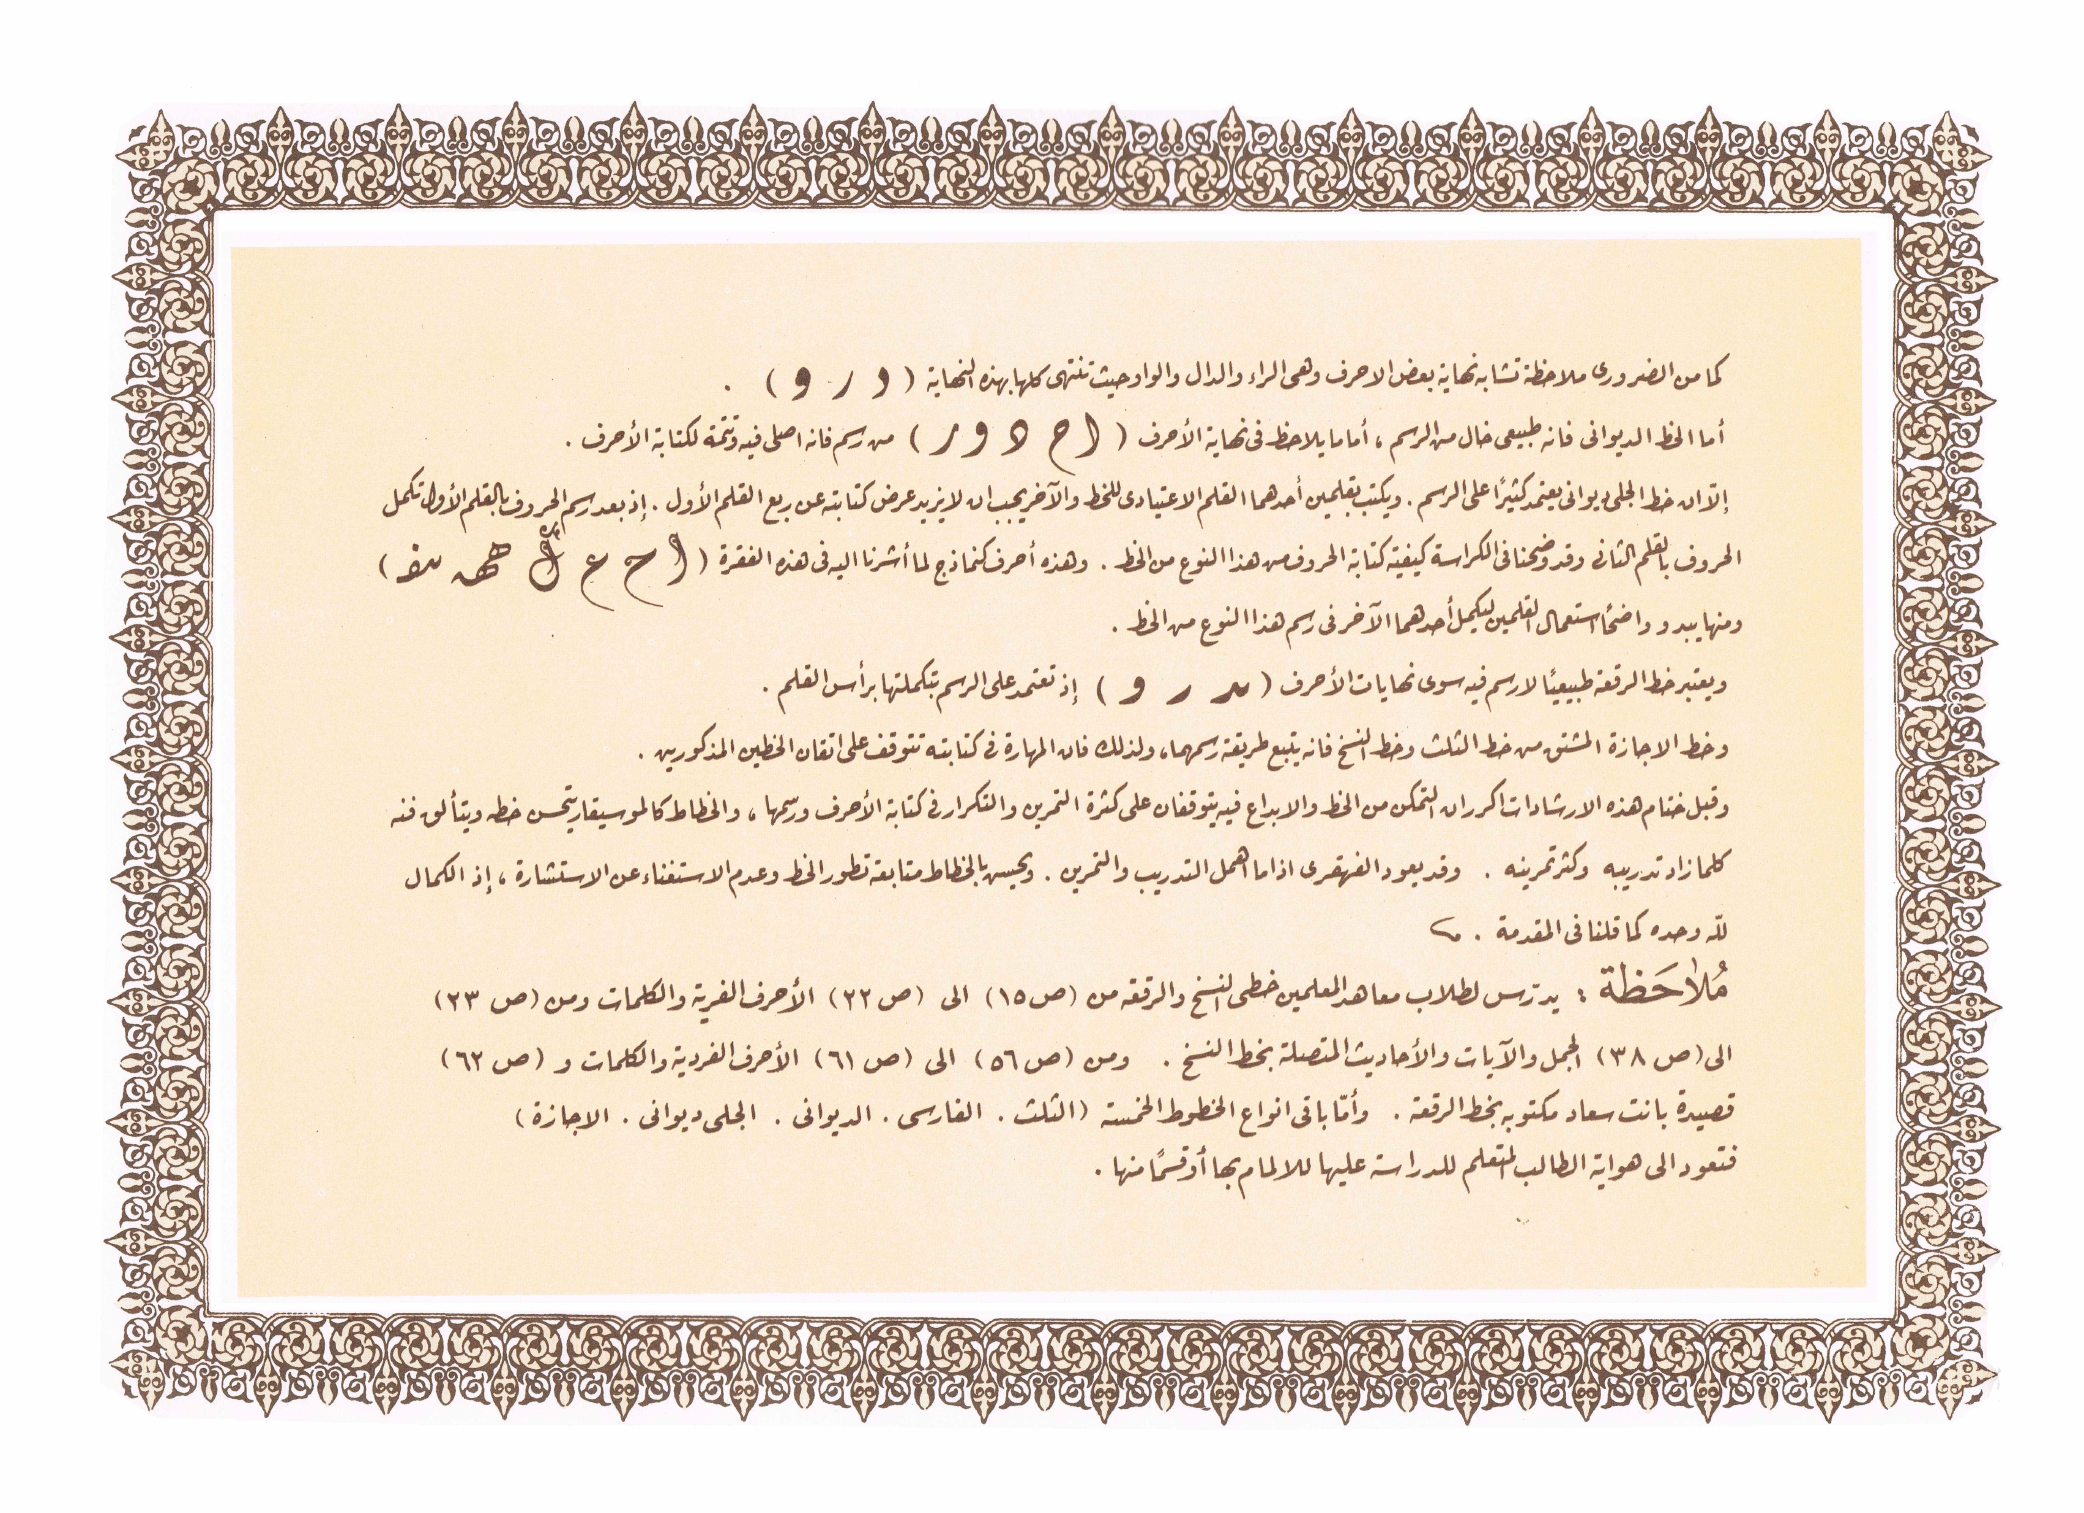 كما من الضرورى ملاحظة تشابه نهاية بعض الاحرف وهى الراء والدال والواو حيث تنتهى كلها بهذه النهاية ( د ر و ) .
أما الخط الديوانى فانه طبيعى خال من الرسم ، أما ما يلاحظ فى نهاية الأحرف ( ا ح د و ر ) من رسم فانه اصلى فيه وتتمة لكتابة الأحرف .
إلّا ان خط الجلى ديوانى يعتمد كثيرًا على الرسم . ويكتب بقلمين أحدهما القلم الاعتيادى للخط والآخر يجب ان لا يزيد عرض كتابته عن ربع القلم الأول . إذ بعد رسم الحروف بالقلم الأول تكمل
الحروف بالقلم الثانى وقد وضحنا فى الكراسة كيفية كتابة الحروف من هذا النوع من الخط . وهذه أحرف كنماذج لما أشرنا اليه فى هذه الفقرة ( ا ح ع ك هـ )
ومنها يبدو واضحًا استعمال القلمين ليكمل أحدهما الآخر فى رسم هذا النوع من الخط .
ويعتبر خط الرقعة طبيعيًا لا رسم فيه سوى نهايات الأحرف ( د ر و ) إذ تعتمد على الرسم بتكملتها برأس القلم .
وخط الاجازة المشتق من خط الثلث وخط النسخ فانه يتبع طريقة رسمهما ، ولذلك فان المهارة فى كتابته تتوقف على اتقان الخطين المذكورين .
وقبل ختام هذه الارشادات اكرر ان التمكن من الخط والابداع فيه يتوقفان على كثرة التمرين والتكرار فى كتابة الأحرف ورسمها ، والخطاط كالموسيقار يتحسن خطه ويتألق فنه
كلما زاد تدريبه وكثر تمرينه . وقد يعود القهقرى اذا ما اهمل التدريب والتمرين . ويحسن بالخطاط متابعة تطور الخط وعدم الاستغناء عن الاستشارة ، إذ الكمال
لله وحده كما قلنا فى المقدمة .
مُلاحَظة : يدرّس لطلاب معاهد المعلمين خطى النسخ والرقعه من (ص ١٥) الى (ص ٢٢) الأحرف الفرية والكلمات ومن (ص ٢٣)
الى (ص ٣٨) الجمل والآيات والأحاديث المتصلة بخط النسخ . ومن (ص ٥٦) الى (ص ٦١) الأحرف الفردية والكلمات و (ص ٦٢)
قصيدة بانت سعاد مكتوبه بخط الرقعة . وأمّا باقى انواع الخطوط الخمسة (الثلث . الفارسى . الديوانى . الجلى ديوانى . الاجازة)
فتعود الى هواية الطالب المتعلم للدراسة عليها للالمام بها أو قسمًا منها .